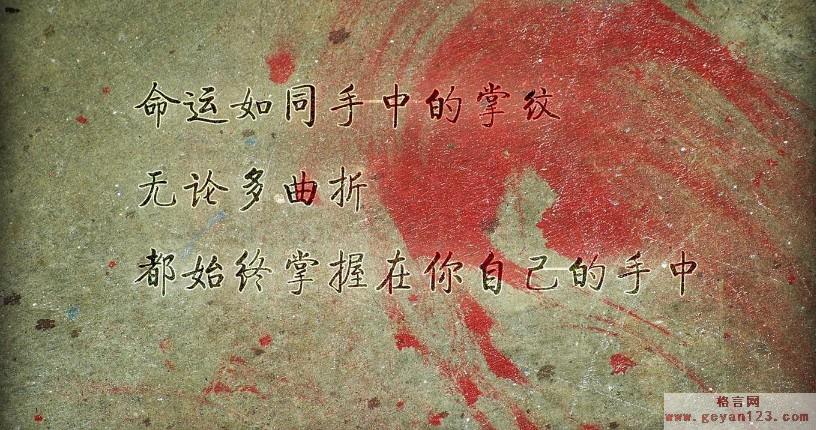 命运如同手中的掌纹
无论多曲折
都始终掌握在你自己的手中
格言网
www.geyan123.com